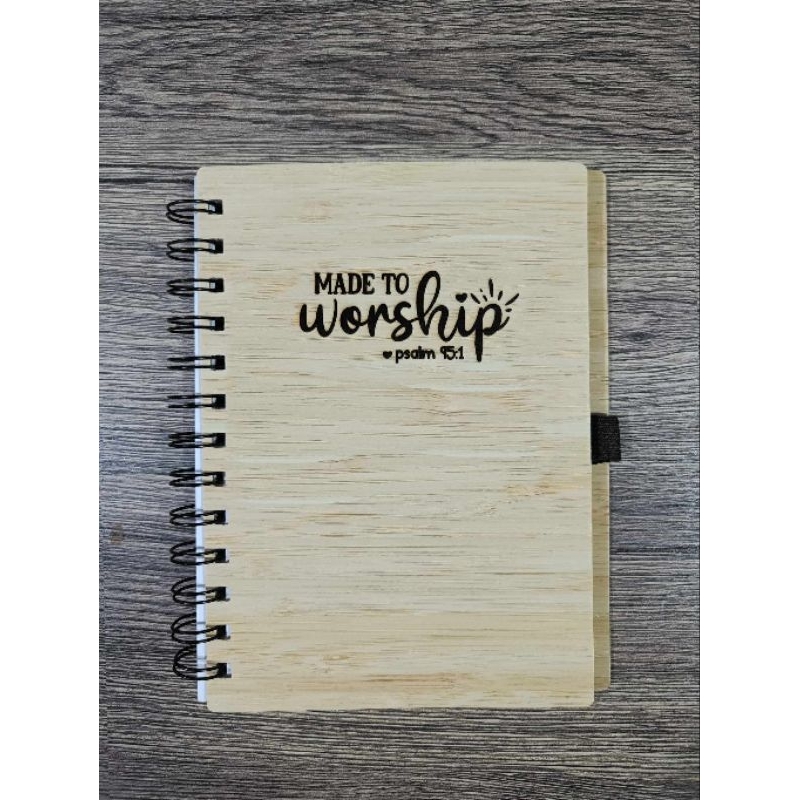 MADE TO
worship
psalm 95:1